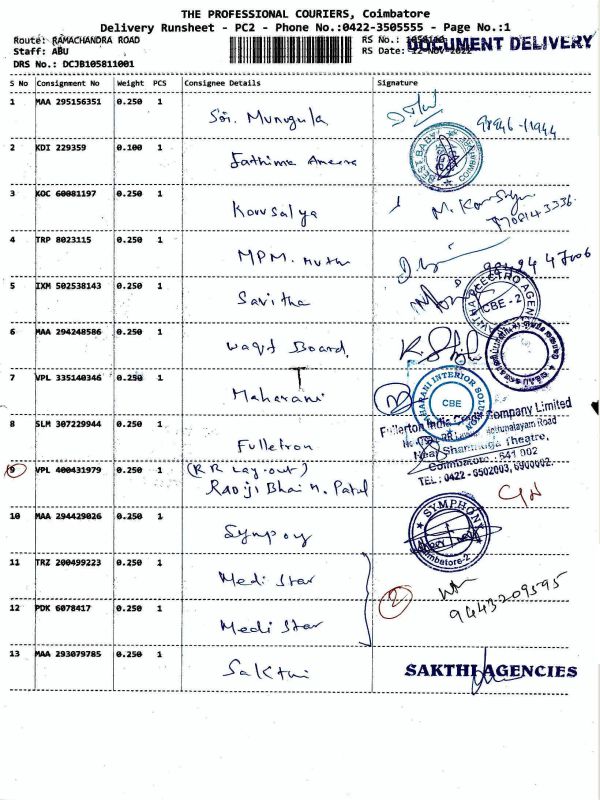 THE PROFESSIONAL COURIERS, Coimbatore
Delivery Runsheet - PC2 - Phone No.:0422-3505555 - Page No.:1
Route: RAMACHANDRA ROAD
RS No.:
Staff: ABU
RS Date: 12-Nov-2022
DOCUMENT DELIVERY
DRS No.: DCJB105811001
S No Consignment No Weight PCS Consignee Details Signature
1 MAA 295156351 0.250 1 Sri. Murugula 98946-11944
2 KDI 229359 0.100 1 Fathima Ameera
BEST BABA
3 KOC 60081197 0.250 1 Kowsalya M. Kowsalya
4 TRP 8023115 0.250 1 MPM. Muthu
5 IXM 502538143 0.250 1 Savitha
CBE - 2
6 MAA 294248586 0.250 1 Waqf Board.
7 VPL 335140346 0.250 1 Maharani
MAHARANI INTERIOR SOLUTION
CBE
8 SLM 307229944 0.250 1 Fulletron
Fullerton India Credit Company Limited
Near Shanmuga Theatre,
Coimbatore - 641 002
TEL : 0422 - 6502003, 6900002.
9 VPL 400431979 0.250 1 (RR Lay-out)
Raoji Bhai M. Patel
10 MAA 294429026 0.250 1 Sympoy
SYMPHONY
Coimbatore-2
11 TRZ 200499223 0.250 1 Medi Star
2
9443209595
12 PDK 6078417 0.250 1 Medi Star
13 MAA 293079785 0.250 1 Sakthi
SAKTHI AGENCIES